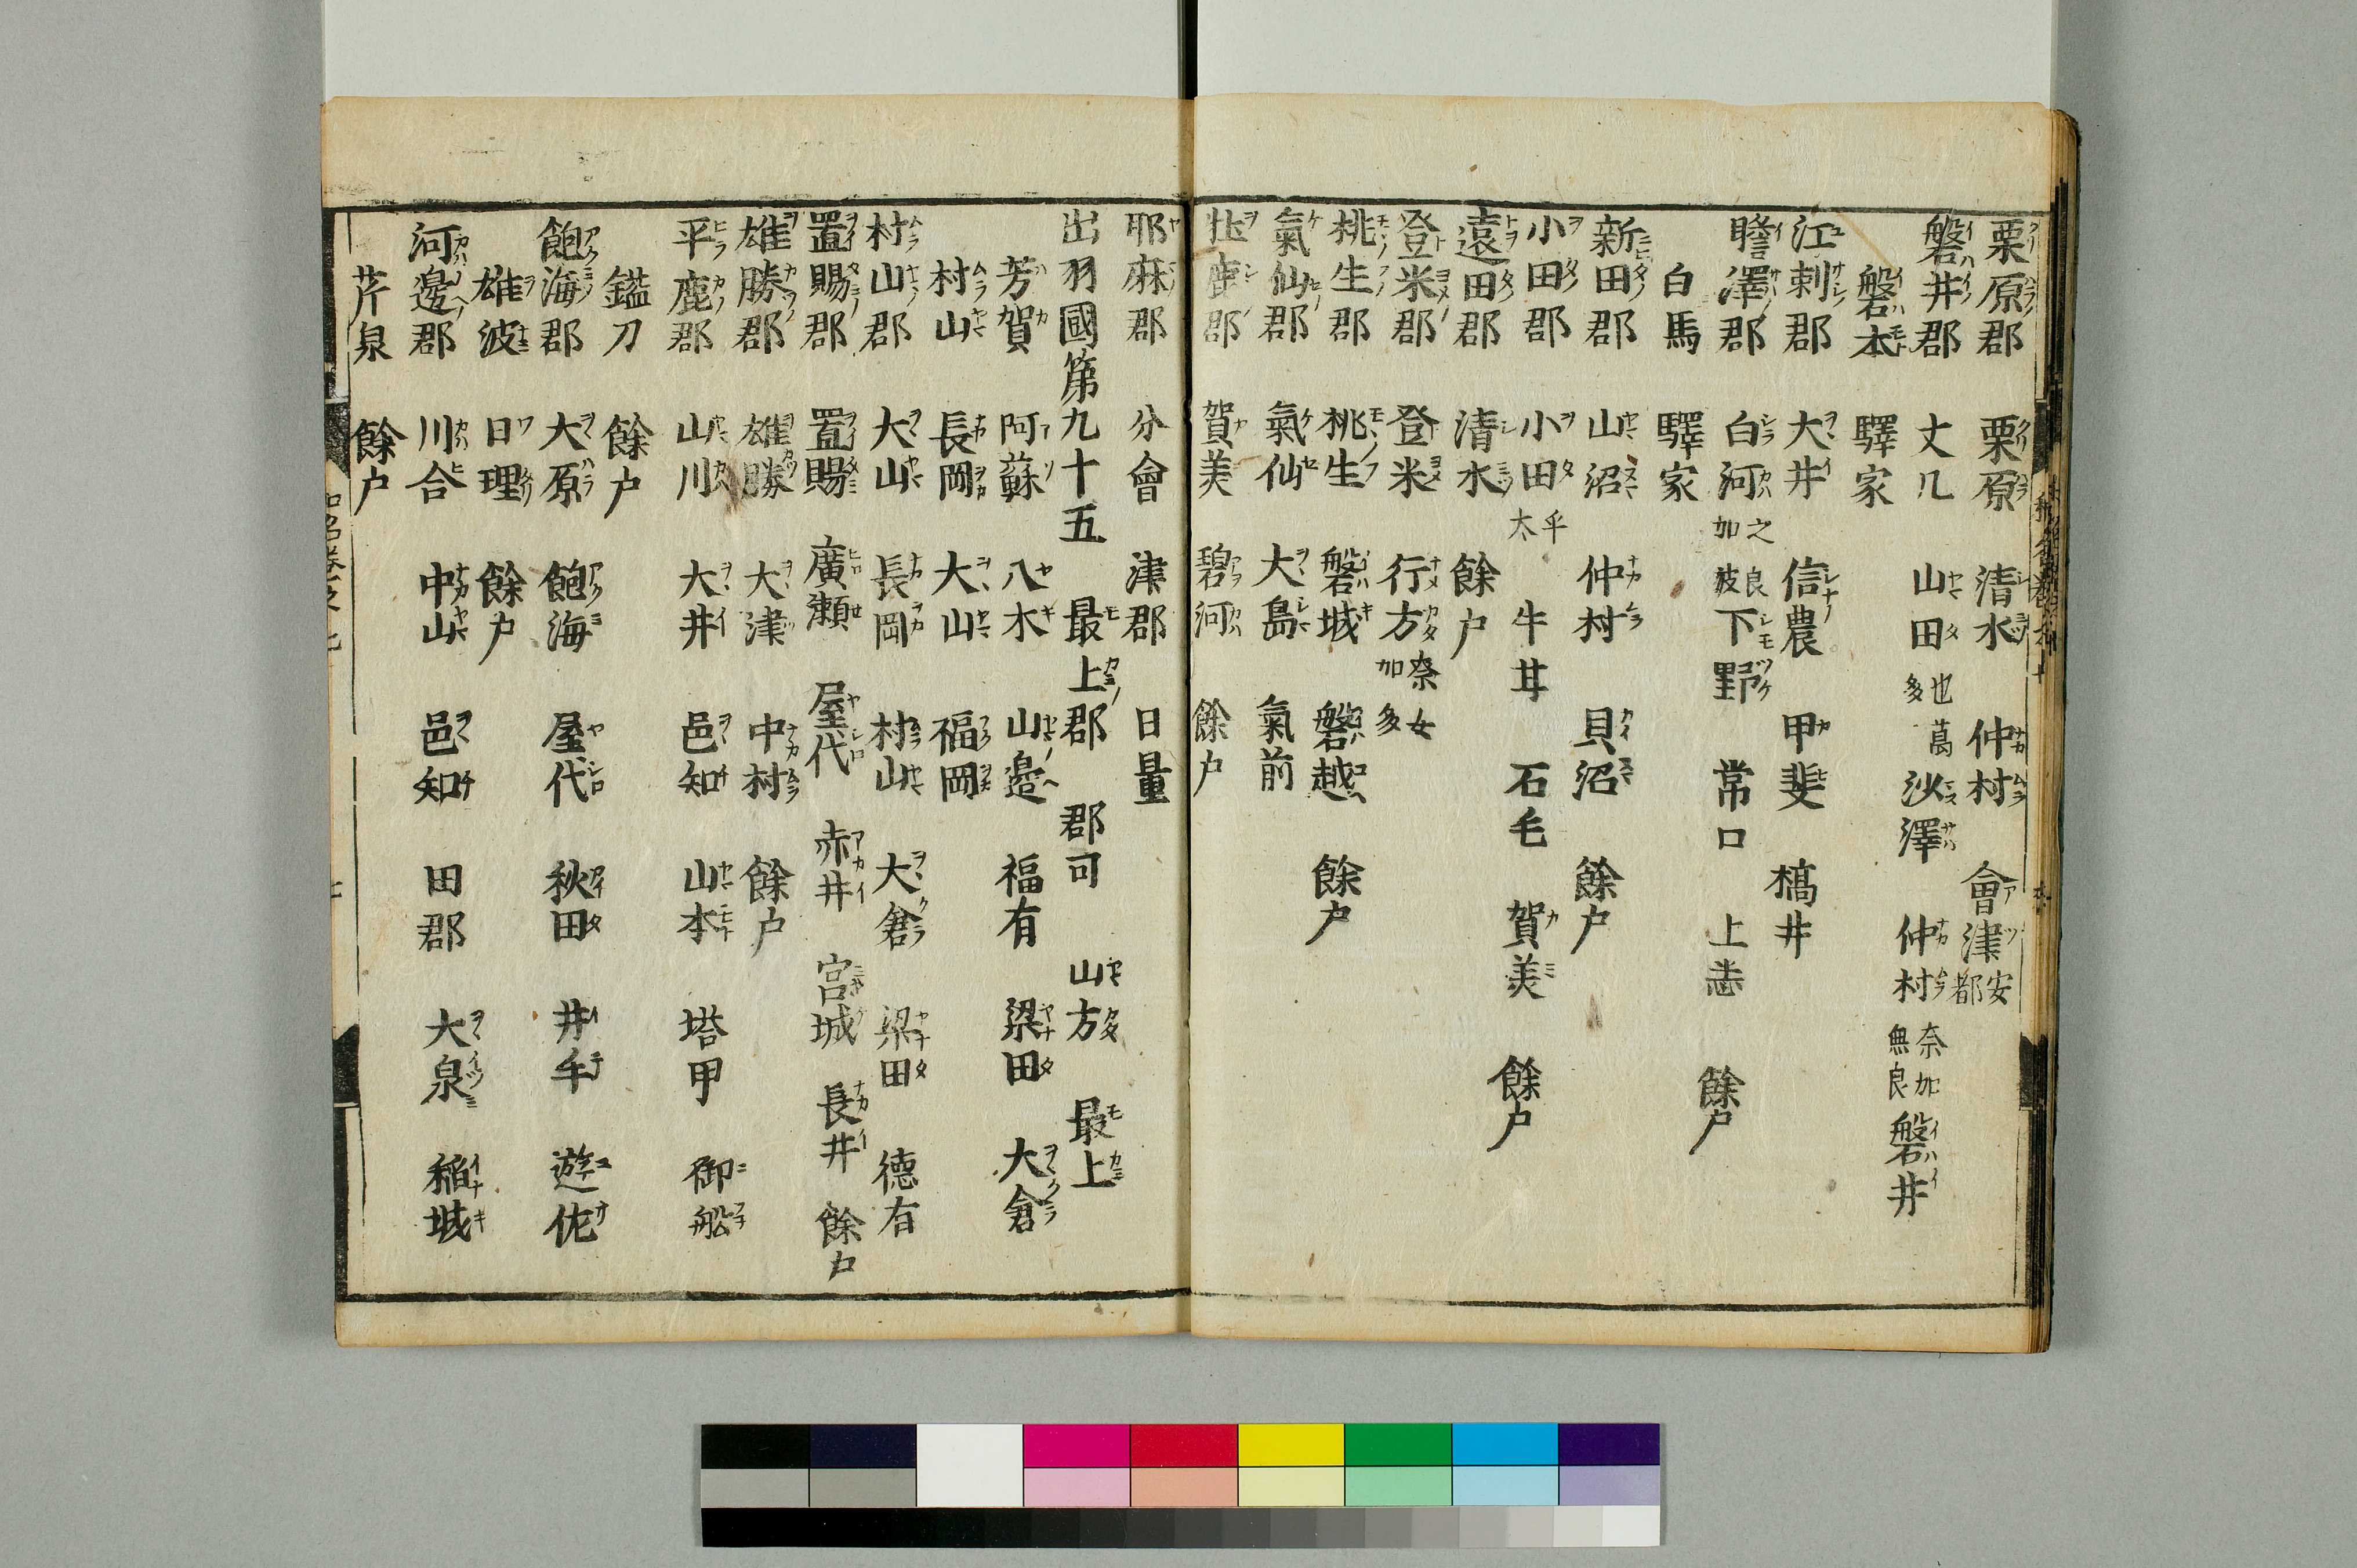 栗原郡 栗原 清水 仲村 會津安都
磐井郡 丈几 山田也萬多 沙澤 仲村奈加無良 磐井
磐本 驛家
江刺郡 大井 信農 甲斐 槗井
膽澤郡 白河之良加波 下野 常口 上 餘戸
白馬 驛家
新田郡 山沼 仲村 貝沼 餘戸
小田郡 小田乎太 牛甘 石毛 賀美 餘戸
遠田郡 清水 餘戸
登米郡 登米 行方奈女加多
桃生郡 桃生 磐城 磐越 餘戸
氣仙郡 氣仙 大島 氣前
牡鹿郡 賀美 碧河 餘戸
耶麻郡 分會 津郡 日量
出羽國第九十五 最上郡 郡可 山方 最上
芳賀 阿蘇 八木 山邉 福有 梁田 大倉
村山 長岡 大山 福岡
村山郡 大山 長岡 村山 大倉 梁田 德有
置賜郡 置賜 廣瀬 屋代 赤井 宮城 長井 餘戸
雄勝郡 雄勝 大津 中村 餘戸
平鹿郡 山川 大井 邑知 山本 塔甲 御船
鎰刀 餘戸
飽海郡 大原 飽海 屋代 秋田 井手 遊佐
雄波 日理 餘戸
河邊郡 川合 中山 邑知 田郡 大泉 稲城
芹泉 餘戸